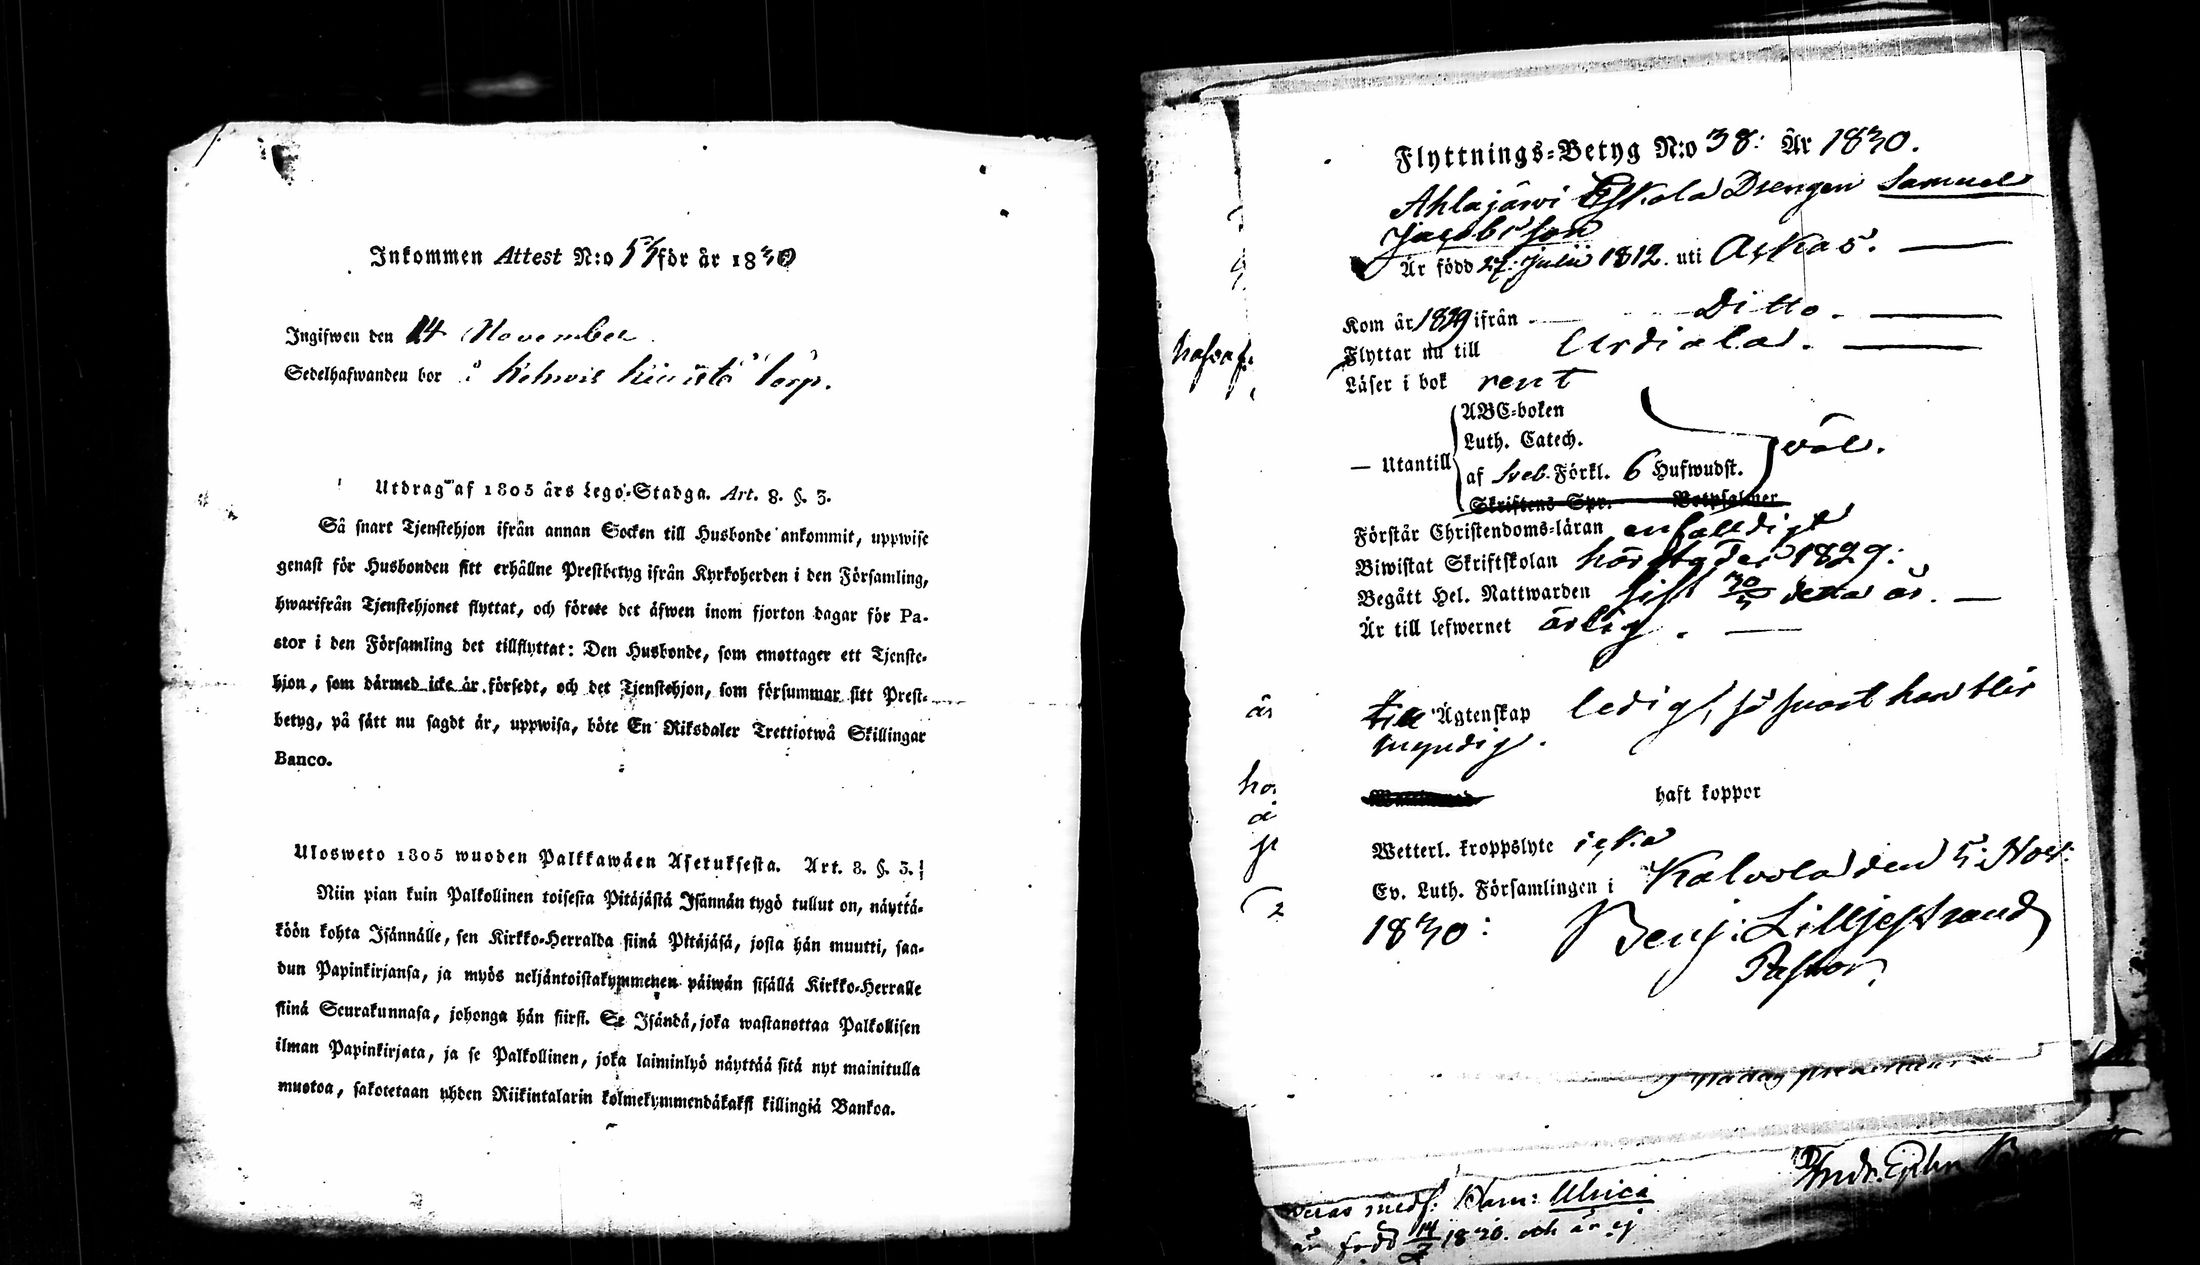 Inkommen Attest N:o 55 för år 1830
Ingifwen den 14 November
Sedelhafwanden bor i torp.
Utdrag af 1805 års Lego-Stadga. Art. 8. §. 3.
Så snart Tjenstehjon ifrån annan Socken till Husbonde ankommit, uppwise
genast för Husbonden sitt erhållne Prestbetyg ifrån Kyrkoherden i den Församling,
hwarifrån Tjenstehjonet flyttat, och förete det äfwen inom fjorton dagar för Pa-
stor i den Församling det tillflyttat: Den Husbonde, som emottager ett Tjenste-
hjon, som därmed icke är försedt, och det Tjenstehjon, som försummar sitt Prest-
betyg, på sätt nu sagdt är, uppwisa, böte En Riksdaler Trettiotwå Skillingar
Banco.
Ulosweto 1805 wuoden Palkkawäen Asetuksesta. Art. 8. §. 3.
Niin pian kuin Palkollinen toisesta Pitäjästä Isännän tygö tullut on, näyttä-
köön kohta Isännälle, sen Kirkko-Herralda siinä Pitäjäsä, josta hän muutti, saa-
dun Papinkirjansa, ja myös neljäntoistakymmenen päiwän sisällä Kirkko-Herralle
siinä Seurakunnasa, johonga hän siirsi. Se Isändä, joka wastanottaa Palkollisen
ilman Papinkirjata, ja se Palkollinen, joka laiminlyö näyttää sitä nyt mainitulla
muotoa, sakotetaan yhden Riikintalarin kolmekymmendäkaksi killingiä Bankoa.
Flyttnings-Betyg N:o 38: År 1830.
Ahlajärwi Eskola Drengen Samuel
Jacobsson
Är född 27 Julii 1812. uti Askas.
Kom år 1829 ifrån Ditto.
Flyttar nu till Urdiala.
Läser i bok rent
— Utantill
ABC-boken
Luth. Catech.
af Sveb. Förkl. 6 Hufwudst.
wäl.
Skriftens Spr. Botpsalmer
Förstår Christendoms-läran enfaldigt
Biwistat Skriftskolan härstädes 1829:
Begått Hel. Nattwarden sist 30/5 detta år.
Är till lefwernet ärlig.
Till Ägtenskap ledig, så snart han blir
myndig.
haft koppor
Wetterl. kroppslyte icke
Ev. Luth. Församlingen i Kalvola den 5: Nov:
1830:
Benj: Lilljestrand
Pastor.
Deras medf. Barn: Ulrica
är född 1830. och är ej